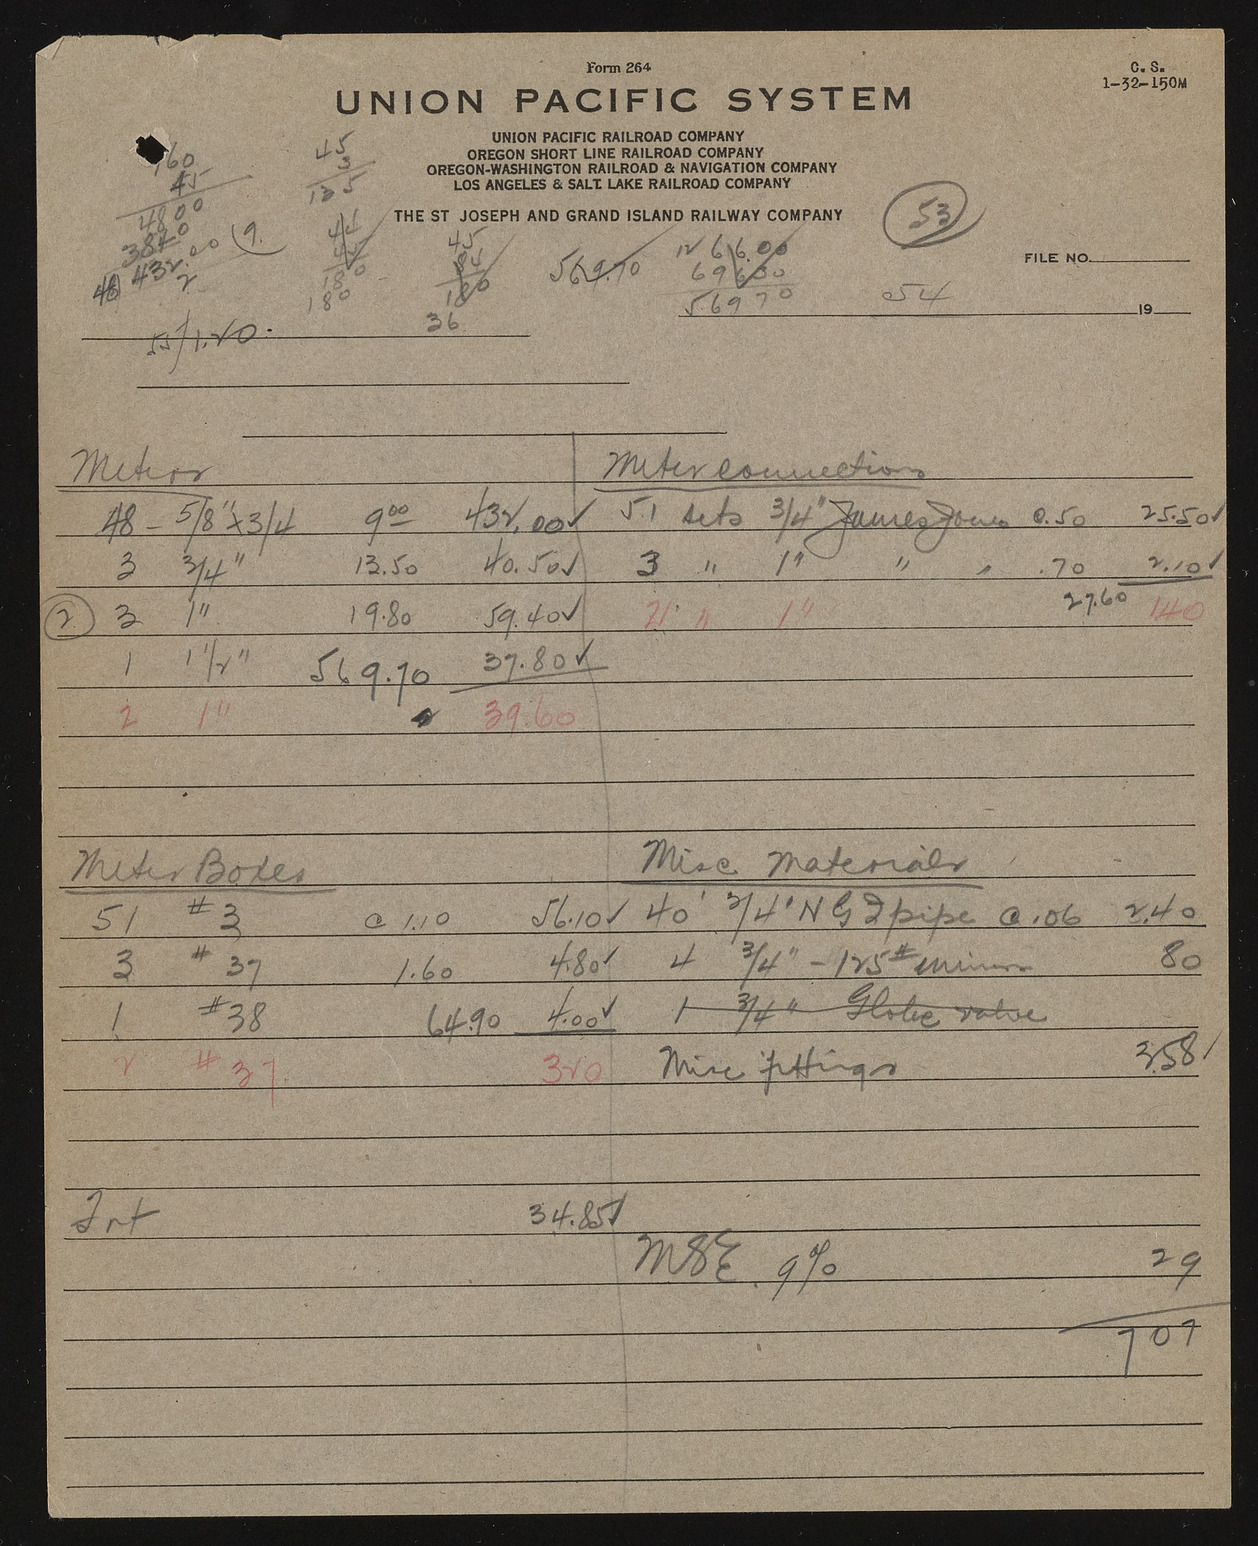 Form 264
C. S.
1-32-150M
UNION PACIFIC SYSTEM
UNION PACIFIC RAILROAD COMPANY
OREGON SHORT LINE RAILROAD COMPANY
OREGON-WASHINGTON RAILROAD & NAVIGATION COMPANY
LOS ANGELES & SALT LAKE RAILROAD COMPANY
THE ST JOSEPH AND GRAND ISLAND RAILWAY COMPANY
45
3
135
53
FILE NO.
569.70
5.6970
54
19
36
Meters Meter connections
48 - 5/8" x 3/4 9.00 432.00✓ 51 sets 3/4" James Jones @.50 25.50✓
3 3/4" 13.50 40.50✓ 3 " 1" " " .70 2.10✓
2 3 1" 19.80 59.40✓ 2 " 1" 27.60 1.40
1 1 1/2" 569.70 37.80✓
2 1" 39.60
Meter Boxes Misc Materials
51 #3 @ 1.10 56.10✓ 40' 3/4" N G I pipe @ .06 2.40
3 #37 1.60 4.80✓ 4 3/4" - 125# 80
1 #38 64.90 4.00✓ 1 3/4" Globe valve
2 #37. 320 Misc fittings 3.58✓
Frt 34.85✓
MSE. 9% 29
707